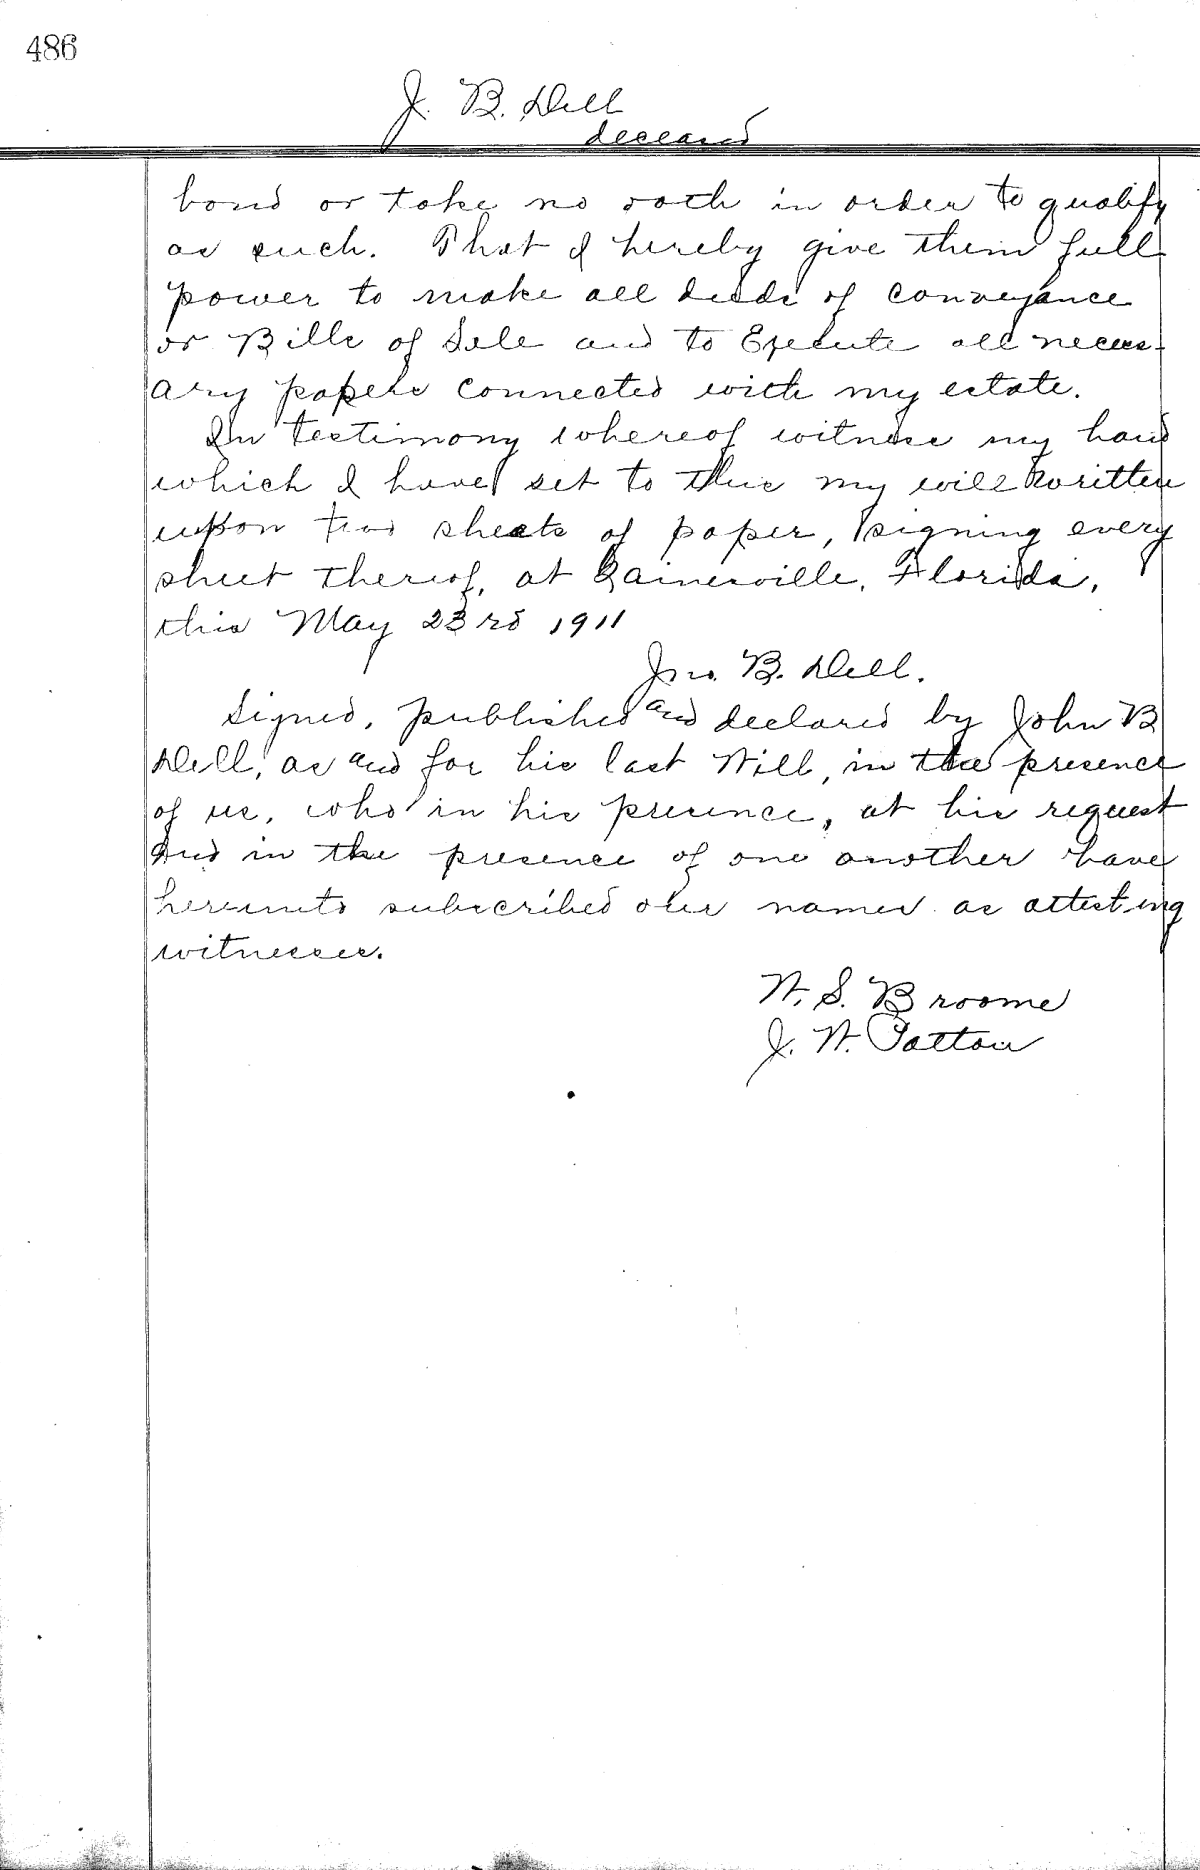 486
J. B. Dell
deceased
bond or take no oath in order to qualify
as such. That I hereby give them full
power to make all deeds of conveyance
or Bills of Sale and to Execute all necess-
ary papers connected with my estate.
In testimony whereof witness my hand
which I have set to this my will written
upon two sheets of paper, signing every
sheet thereof, at Gainesville, Florida,
this May 23rd 1911
Jno. B. Dell.
Signed, published and declared by John B
Dell, as and for his last Will, in the presence
of us, who in his presence, at his request
and in the presence of one another have
hereunto subscribed our names as attesting
witnesses.
W. S. Broome
J. W. Patton